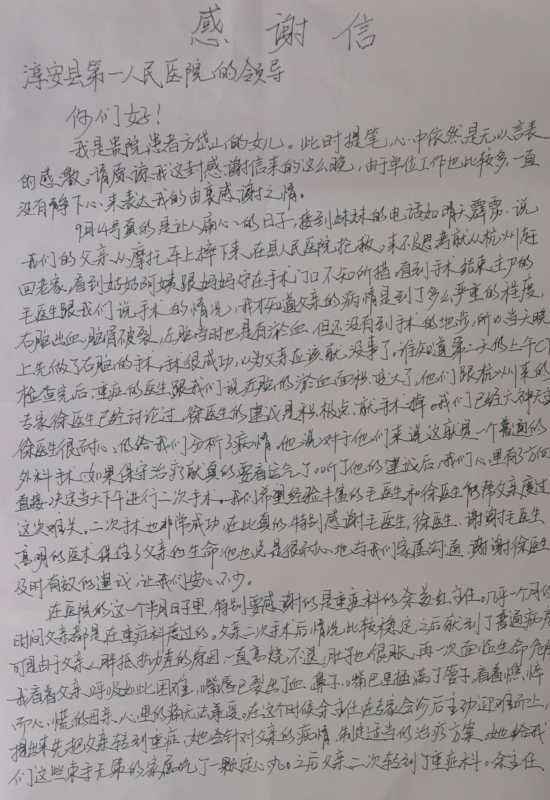 感谢信
淳安县第一人民医院的领导
你们好！
我是贵院患者方岱山的女儿。此时提笔，心中依然是无以言表
的感激。请原谅我这封感谢信来的这么晚，由于单位工作也比较多，一直
没有静下心来表达我的由衷感谢之情。
9月4号真的是让人痛心的日子，接到妹妹的电话如晴天霹雳，说
我们的父亲从摩托车上摔下来，在县人民医院抢救，来不及思考就从杭州赶
回老家，看到姑姑阿姨跟妈妈守在手术门口不知所措，看到手术结束主刀的
毛医生跟我们说手术的情况，我才知道父亲的病情是到了多么严重的程度，
右脑出血，脑骨破裂，左脑当时也是有淤血，但还没有到手术的地步，所以当天晚
上先做了右脑的手术，手术很成功，以为父亲应该就没事了。谁知道第二天的上午CT
检查完后，重症的医生跟我们说左脑的淤血面积变大了，他们跟杭州来的
专家徐医生已经讨论过，徐医生的建议是积极点，就手术掉。我们已经六神无主
徐医生很耐心的给我们分析了病情。他说对于他们来说这就是一个普通的
外科手术，如果保守治疗就真的要看运气了。听了他的建议后，我们心里有了方向
直接决定当天下午进行二次手术。我们希望经验丰富的毛医生和徐医生能帮父亲度过
这次难关。二次手术也非常成功，在此真的特别感谢毛医生，徐医生，谢谢毛医生
高明的医术保住了父亲的生命，他也总是很耐心地与我们家属沟通，谢谢徐医生
及时有效的建议，让我们安心不少。
在医院的这一个半月日子里，特别要感谢的是重症科的余苏红主任。几乎一个月的
时间父亲都是在重症科度过的。父亲二次手术后情况比较稳定之后就到了普通病房
可是由于父亲人胖抵抗力差的原因，一直高烧不退，肚子也很胀，再一次面临生命危险
我看着父亲呼吸如此困难，嘴唇已裂出了血，鼻子，嘴巴里插满了管子，看着憔悴
而心慌的母亲，心里的痛无法承受。在这个时候余主任在专家会诊后主动迎难而上，
提出来先把父亲转到重症，她会针对父亲的病情制定适当的治疗方案，她给我
们这些束手无策的家属吃了一颗定心丸。之后父亲二次转到了重症科。余主任、